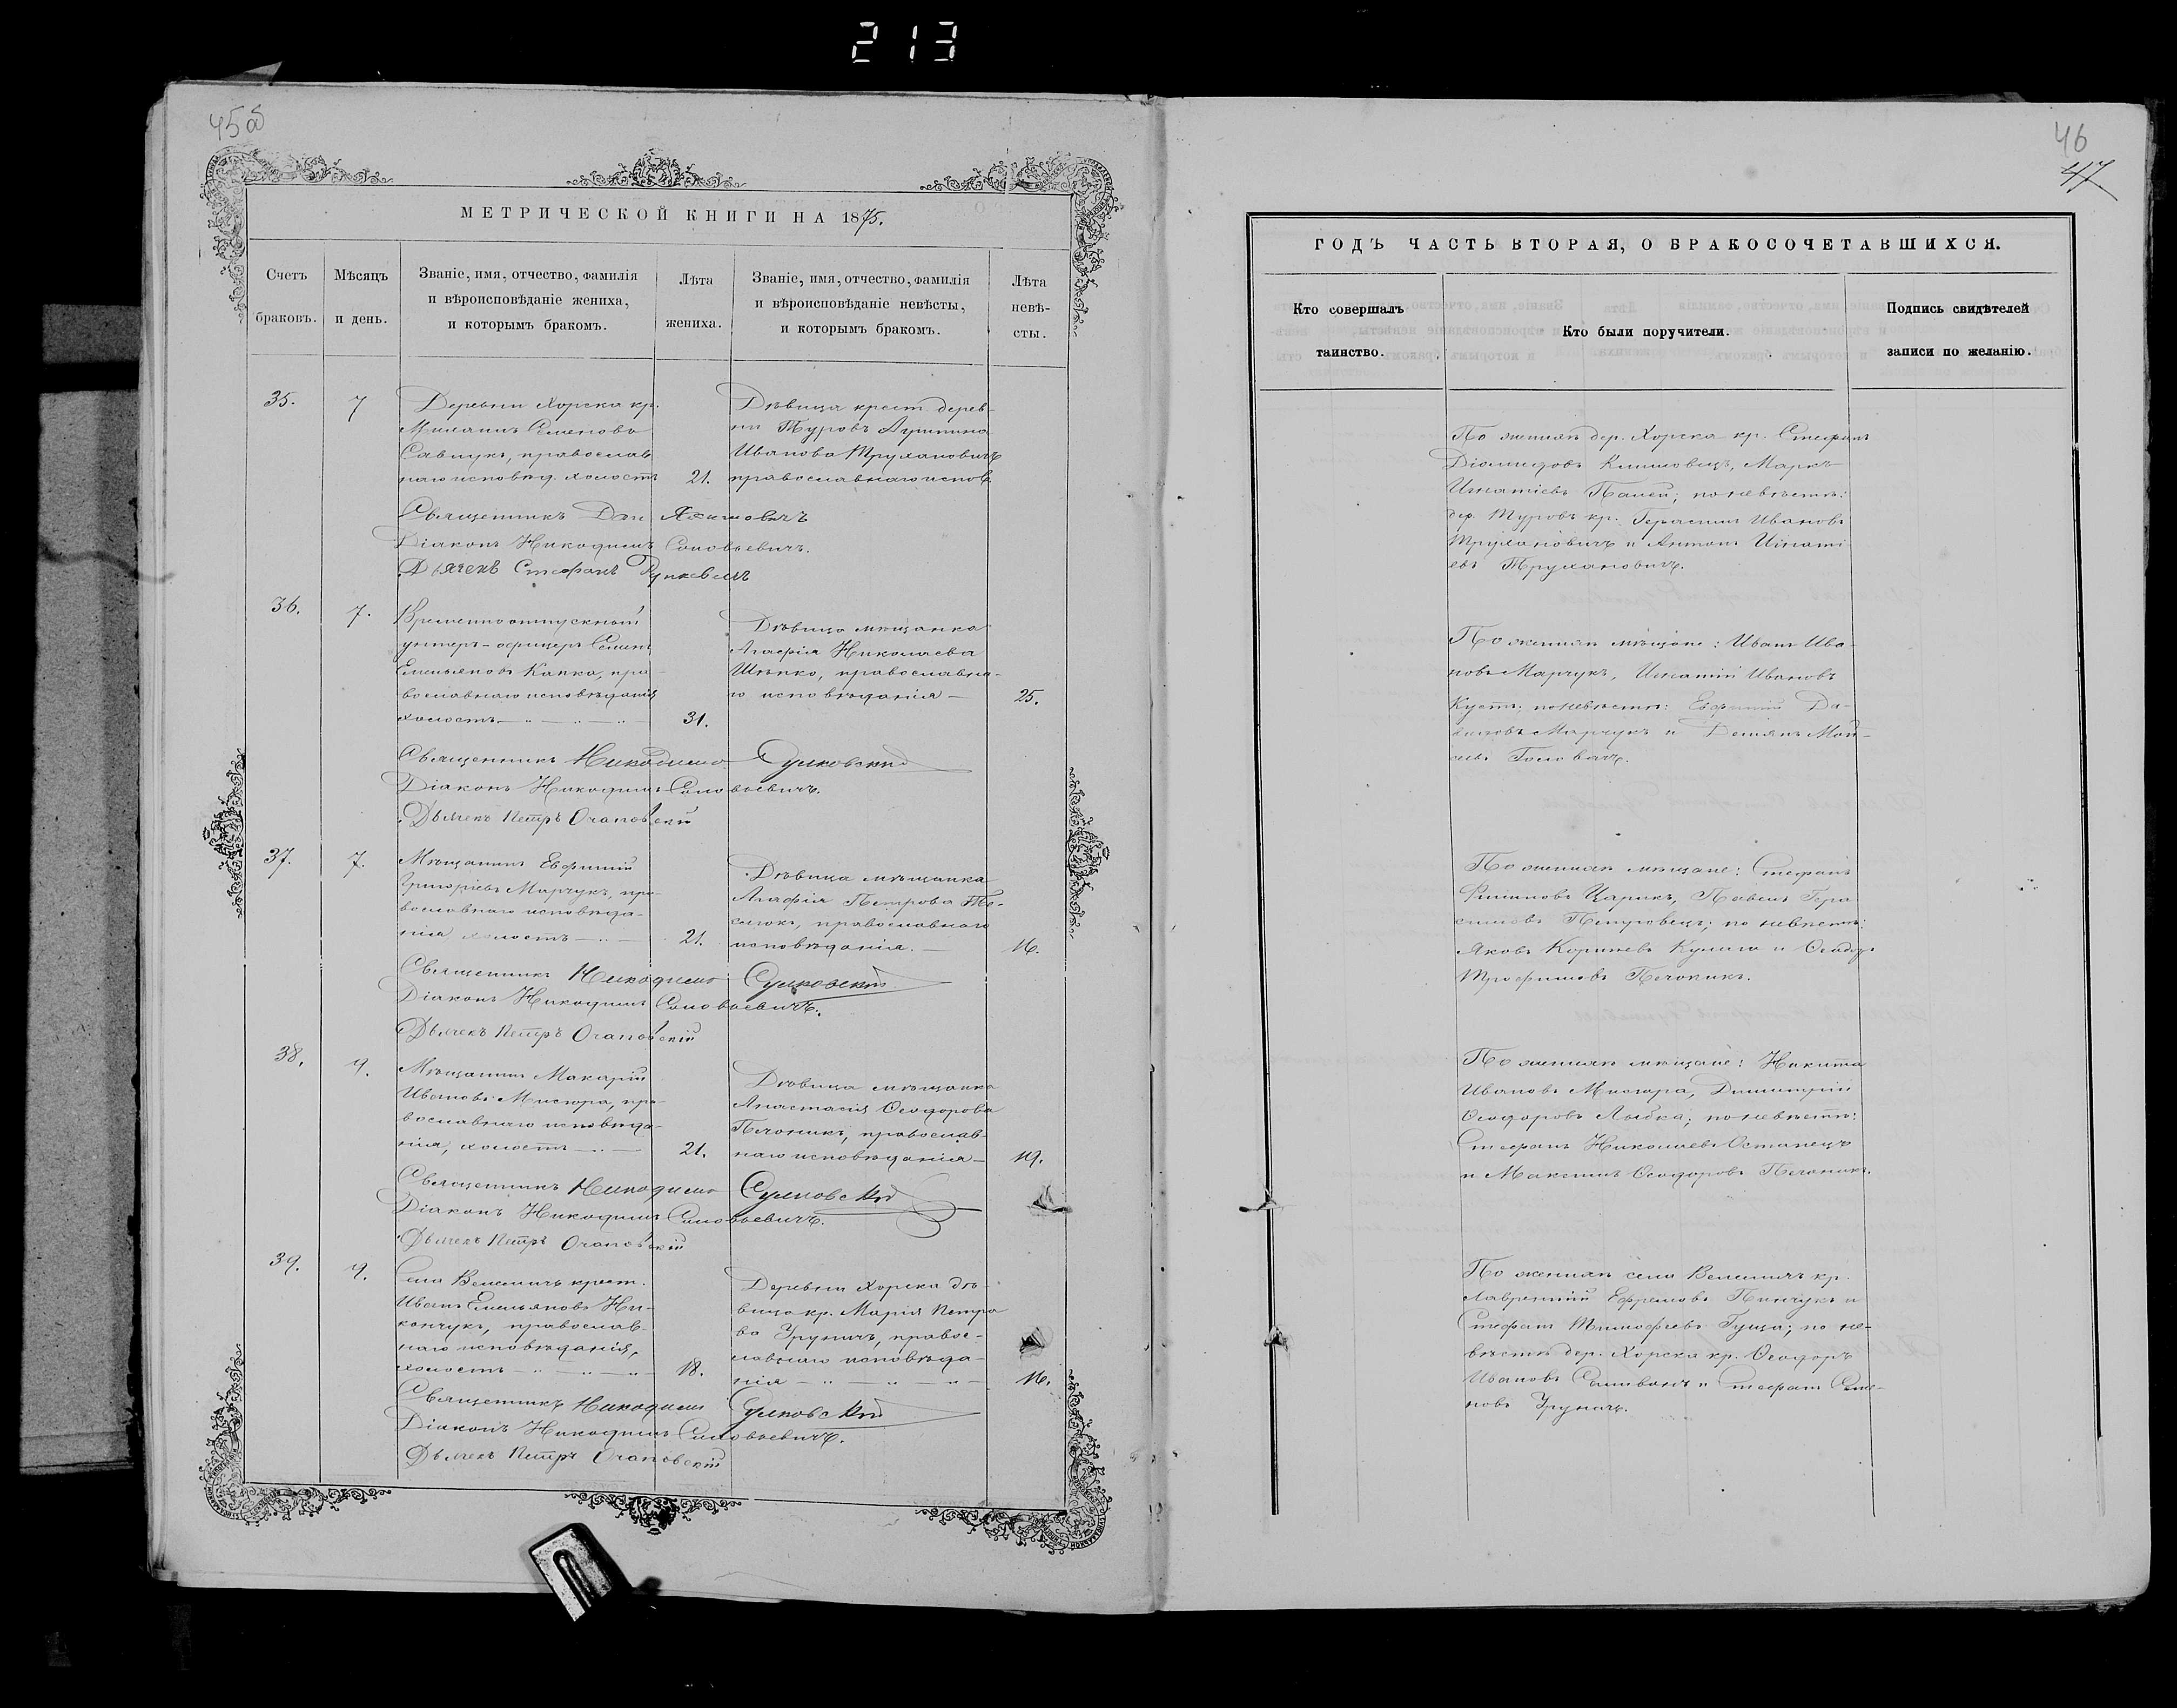 213
45об
МЕТРИЧЕСКОЙ КНИГИ НА 1875.
Счетъ браковъ.
Мѣсяцъ и день.
Званіе, имя, отчество, фамилія и вѣроисповѣданіе жениха, и которымъ бракомъ.
Лѣта жениха.
Званіе, имя, отчество, фамилія и вѣроисповѣданіе невѣсты, и которымъ бракомъ.
Лѣта невѣ-сты.
35.
7
Деревни Хорска кр.
Семеновъ
Савчукъ, православ
наго исповѣд. холостъ
21.
Дѣвица крест. дерев-
ни Туровъ
Иванова Трухановичъ
православнаго испов.
Священникъ
Діаконъ Никодимъ Соловьевичъ.
Дьячекъ Стефанъ
36.
7.
Временноотпускной
унтеръ-офицеръ
Емельяновъ Капка, пра-
вославнаго исповѣданія
холостъ
31.
Дѣвица мѣщанка
Агафія Николаева
Шѣпко, православна-
го исповѣданія
25.
Священникъ Никодимъ
Діаконъ Никодимъ Соловьевичъ.
Дьячекъ Петръ
37.
7.
Мѣщанинъ Евфимій
Григоріевъ Марчукъ, пра-
вославнаго исповѣда-
нія холостъ
21.
Дѣвица мѣщанка
Агафія Петрова
православнаго
исповѣданія.
16.
Священникъ Никодимъ
Діаконъ Никодимъ Соловьевичъ.
Дьячекъ Петръ
38.
9.
Мѣщанинъ Макарій
Ивановъ Мисюра, пра-
вославнаго исповѣда-
нія, холостъ
21.
Дѣвица мѣщанка
Анастасія Ѳеодорова
Печоникъ, православ-
наго исповѣданія
19.
Священникъ Никодимъ
Діаконъ Никодимъ Соловьевичъ.
Дьячекъ Петръ
39.
9.
Села Велемичъ крест.
Иванъ Емельяновъ Ни-
кончукъ, православ-
наго исповѣданія,
холостъ
18.
Деревни Хорска дѣ-
вица кр. Марія Петро
ва Грудничъ, правос-
лавнаго исповѣда-
нія
16.
Священникъ Никодимъ
Діаконъ Никодимъ Соловьевичъ.
Дьячекъ Петръ
46
47
ГОДЪ ЧАСТЬ ВТОРАЯ, О БРАКОСОЧЕТАВШИХСЯ.
Кто совершалъ таинство.
Кто были поручители.
Подпись свидѣтелей записи по желанію.
По женихѣ дер. Хорска кр. Стефанъ
Діомидовъ Климовецъ, Маркъ
Игнатіевъ Палей; по невѣстѣ:
дер. Туровъ кр. Герасимъ Ивановъ
Трухановичъ и Антонъ Игнаті
евъ Трухановичъ.
По женихѣ мѣщане: Иванъ Ива-
новъ Марчукъ, Игнатій Ивановъ
Кустъ; по невѣстѣ: Евфимій Да-
Марчукъ и Демянъ
Головачъ.
По женихѣ мѣщане: Стефанъ
Филиповъ Царикъ, Павелъ Гера
симовъ Петровецъ; по невѣстѣ:
Яковъ Кулага и Ѳеодоръ
Трофимовъ Печоникъ.
По женихѣ мѣщане: Никита
Ивановъ Мисюра, Димитрій
Ѳеодоровъ Лыбка; по невѣстѣ:
Стефанъ Николаевъ Останецъ
и Максимъ Ѳеодоровъ Печоникъ.
По женихѣ села Велемичъ кр.
Лаврентій Ефремовъ Пинчукъ и
Стефанъ Тимофѣевъ Гуща; по не-
вѣстѣ дер. Хорска кр. Ѳеодоръ
Ивановъ и Стефанъ Семе-
новъ